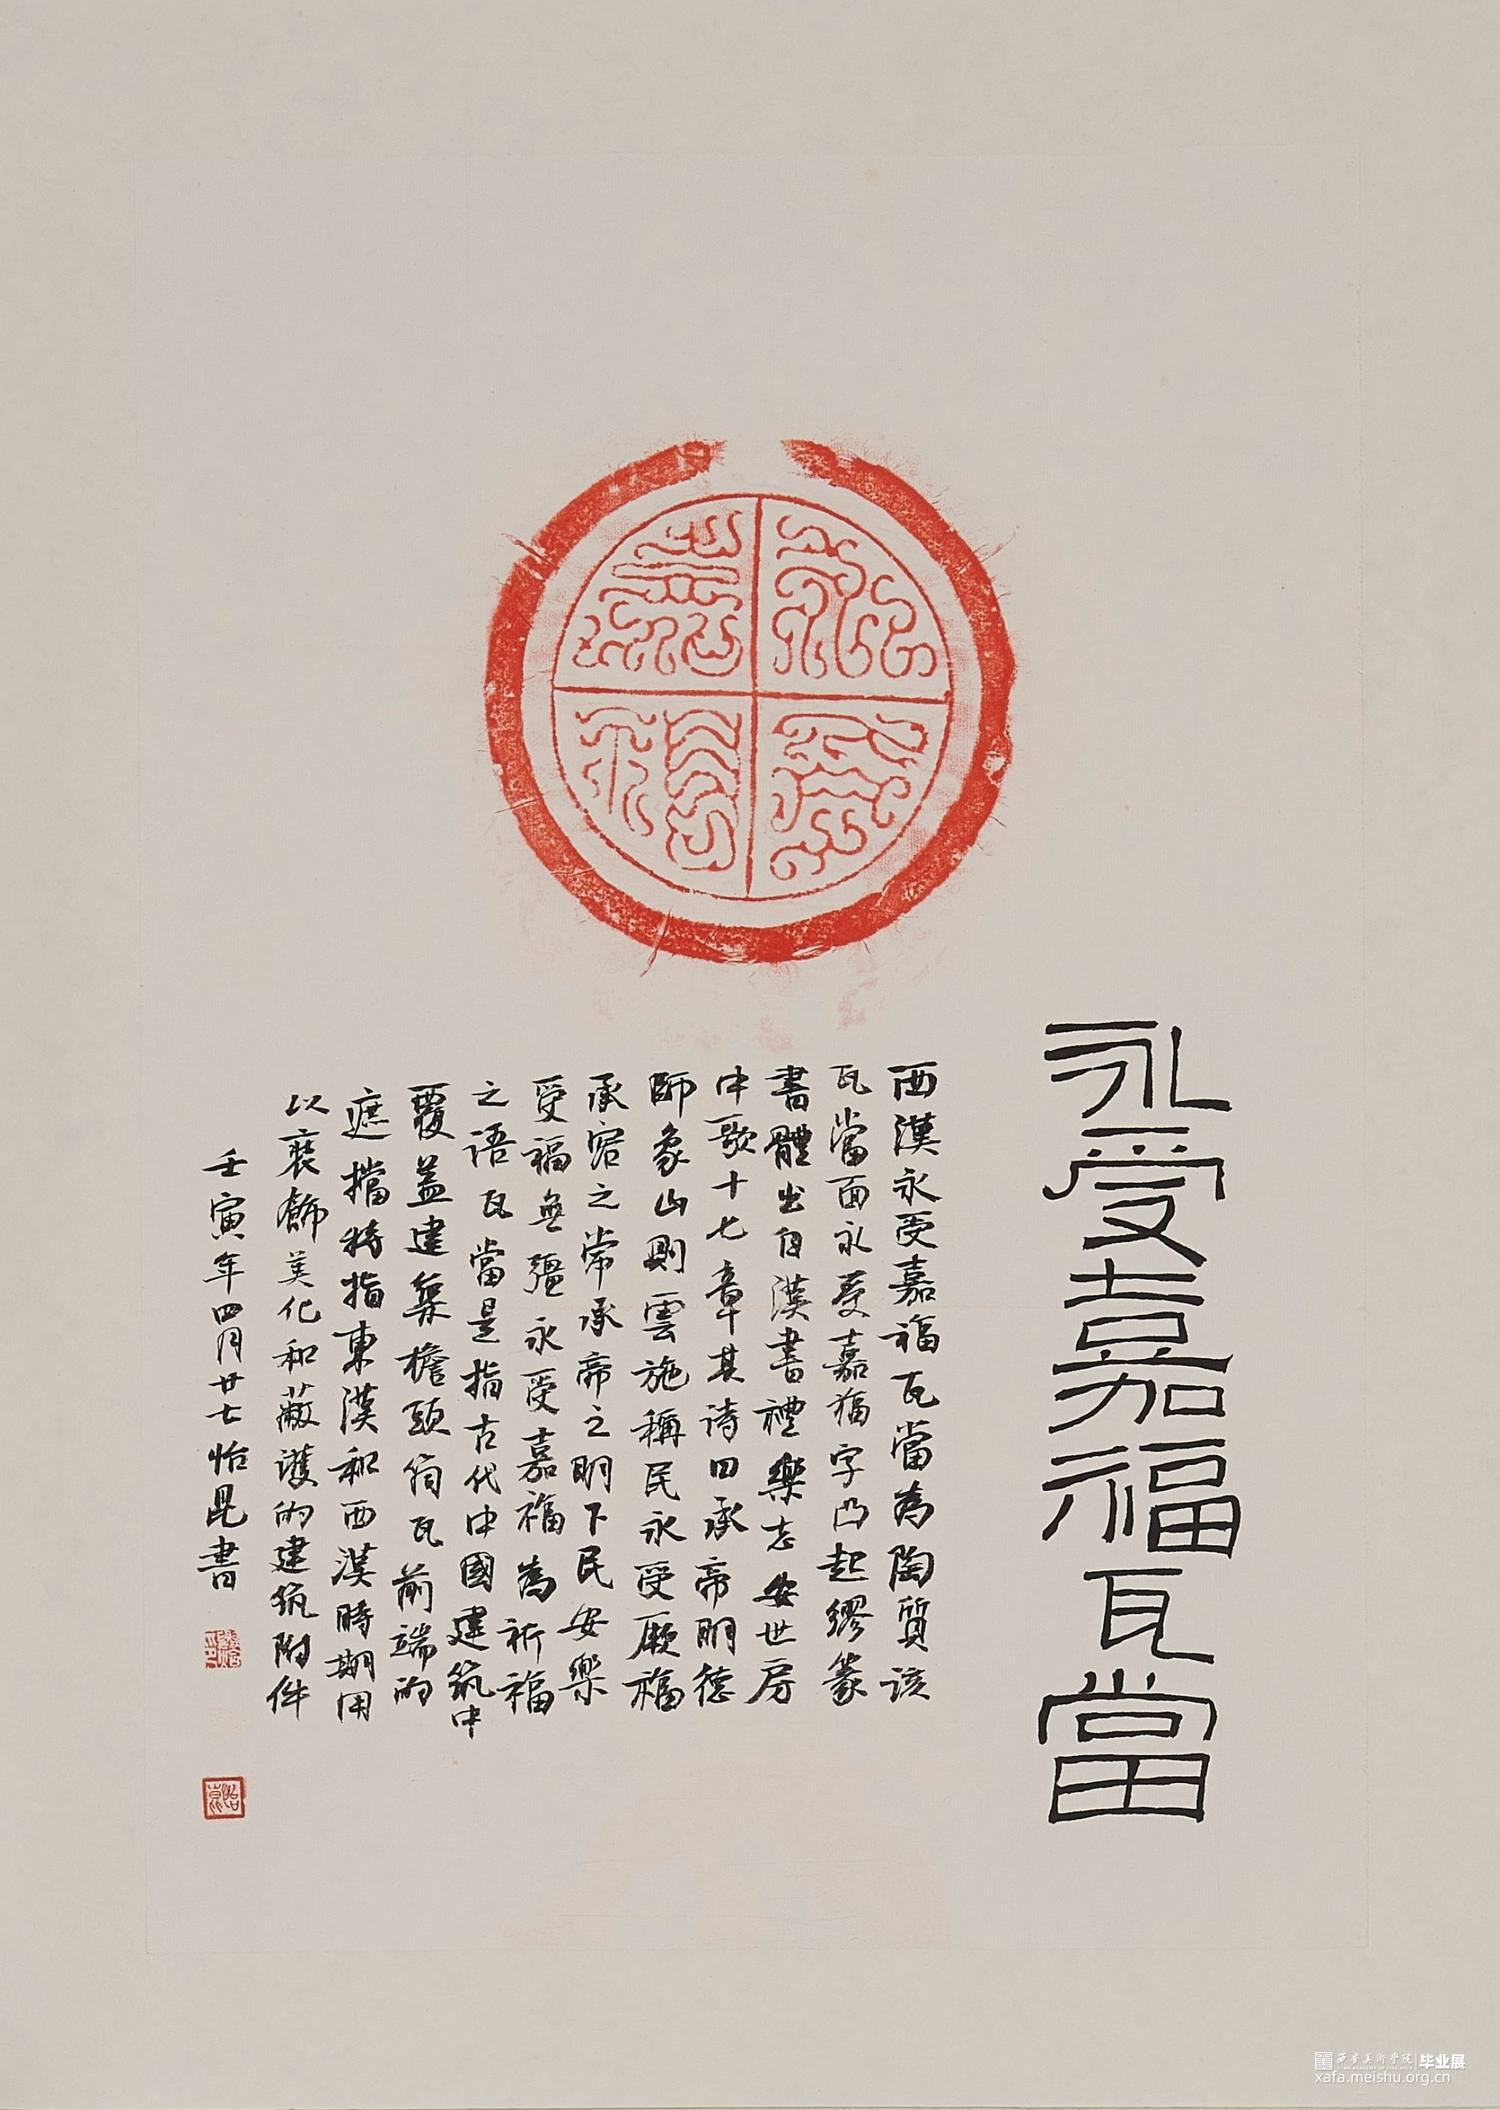 永受嘉福瓦當
西漢永受嘉福瓦當為陶質該
瓦當面永受嘉福字凸起繆篆
書體出自漢書禮樂志安世房
中歌十七章其詩曰承帝明德
師象山則雲施稱民永受厥福
承容之常承帝之明下民安樂
受福無疆永受嘉福為祈福
之語瓦當是指古代中國建筑中
覆蓋建築檐頭筒瓦前端的
遮擋特指東漢和西漢時期用
以裝飾美化和蔽護的建筑附件
壬寅年四月廿七怡昆書
永受嘉福
西安美術學院 毕业展
xafa.meishu.org.cn